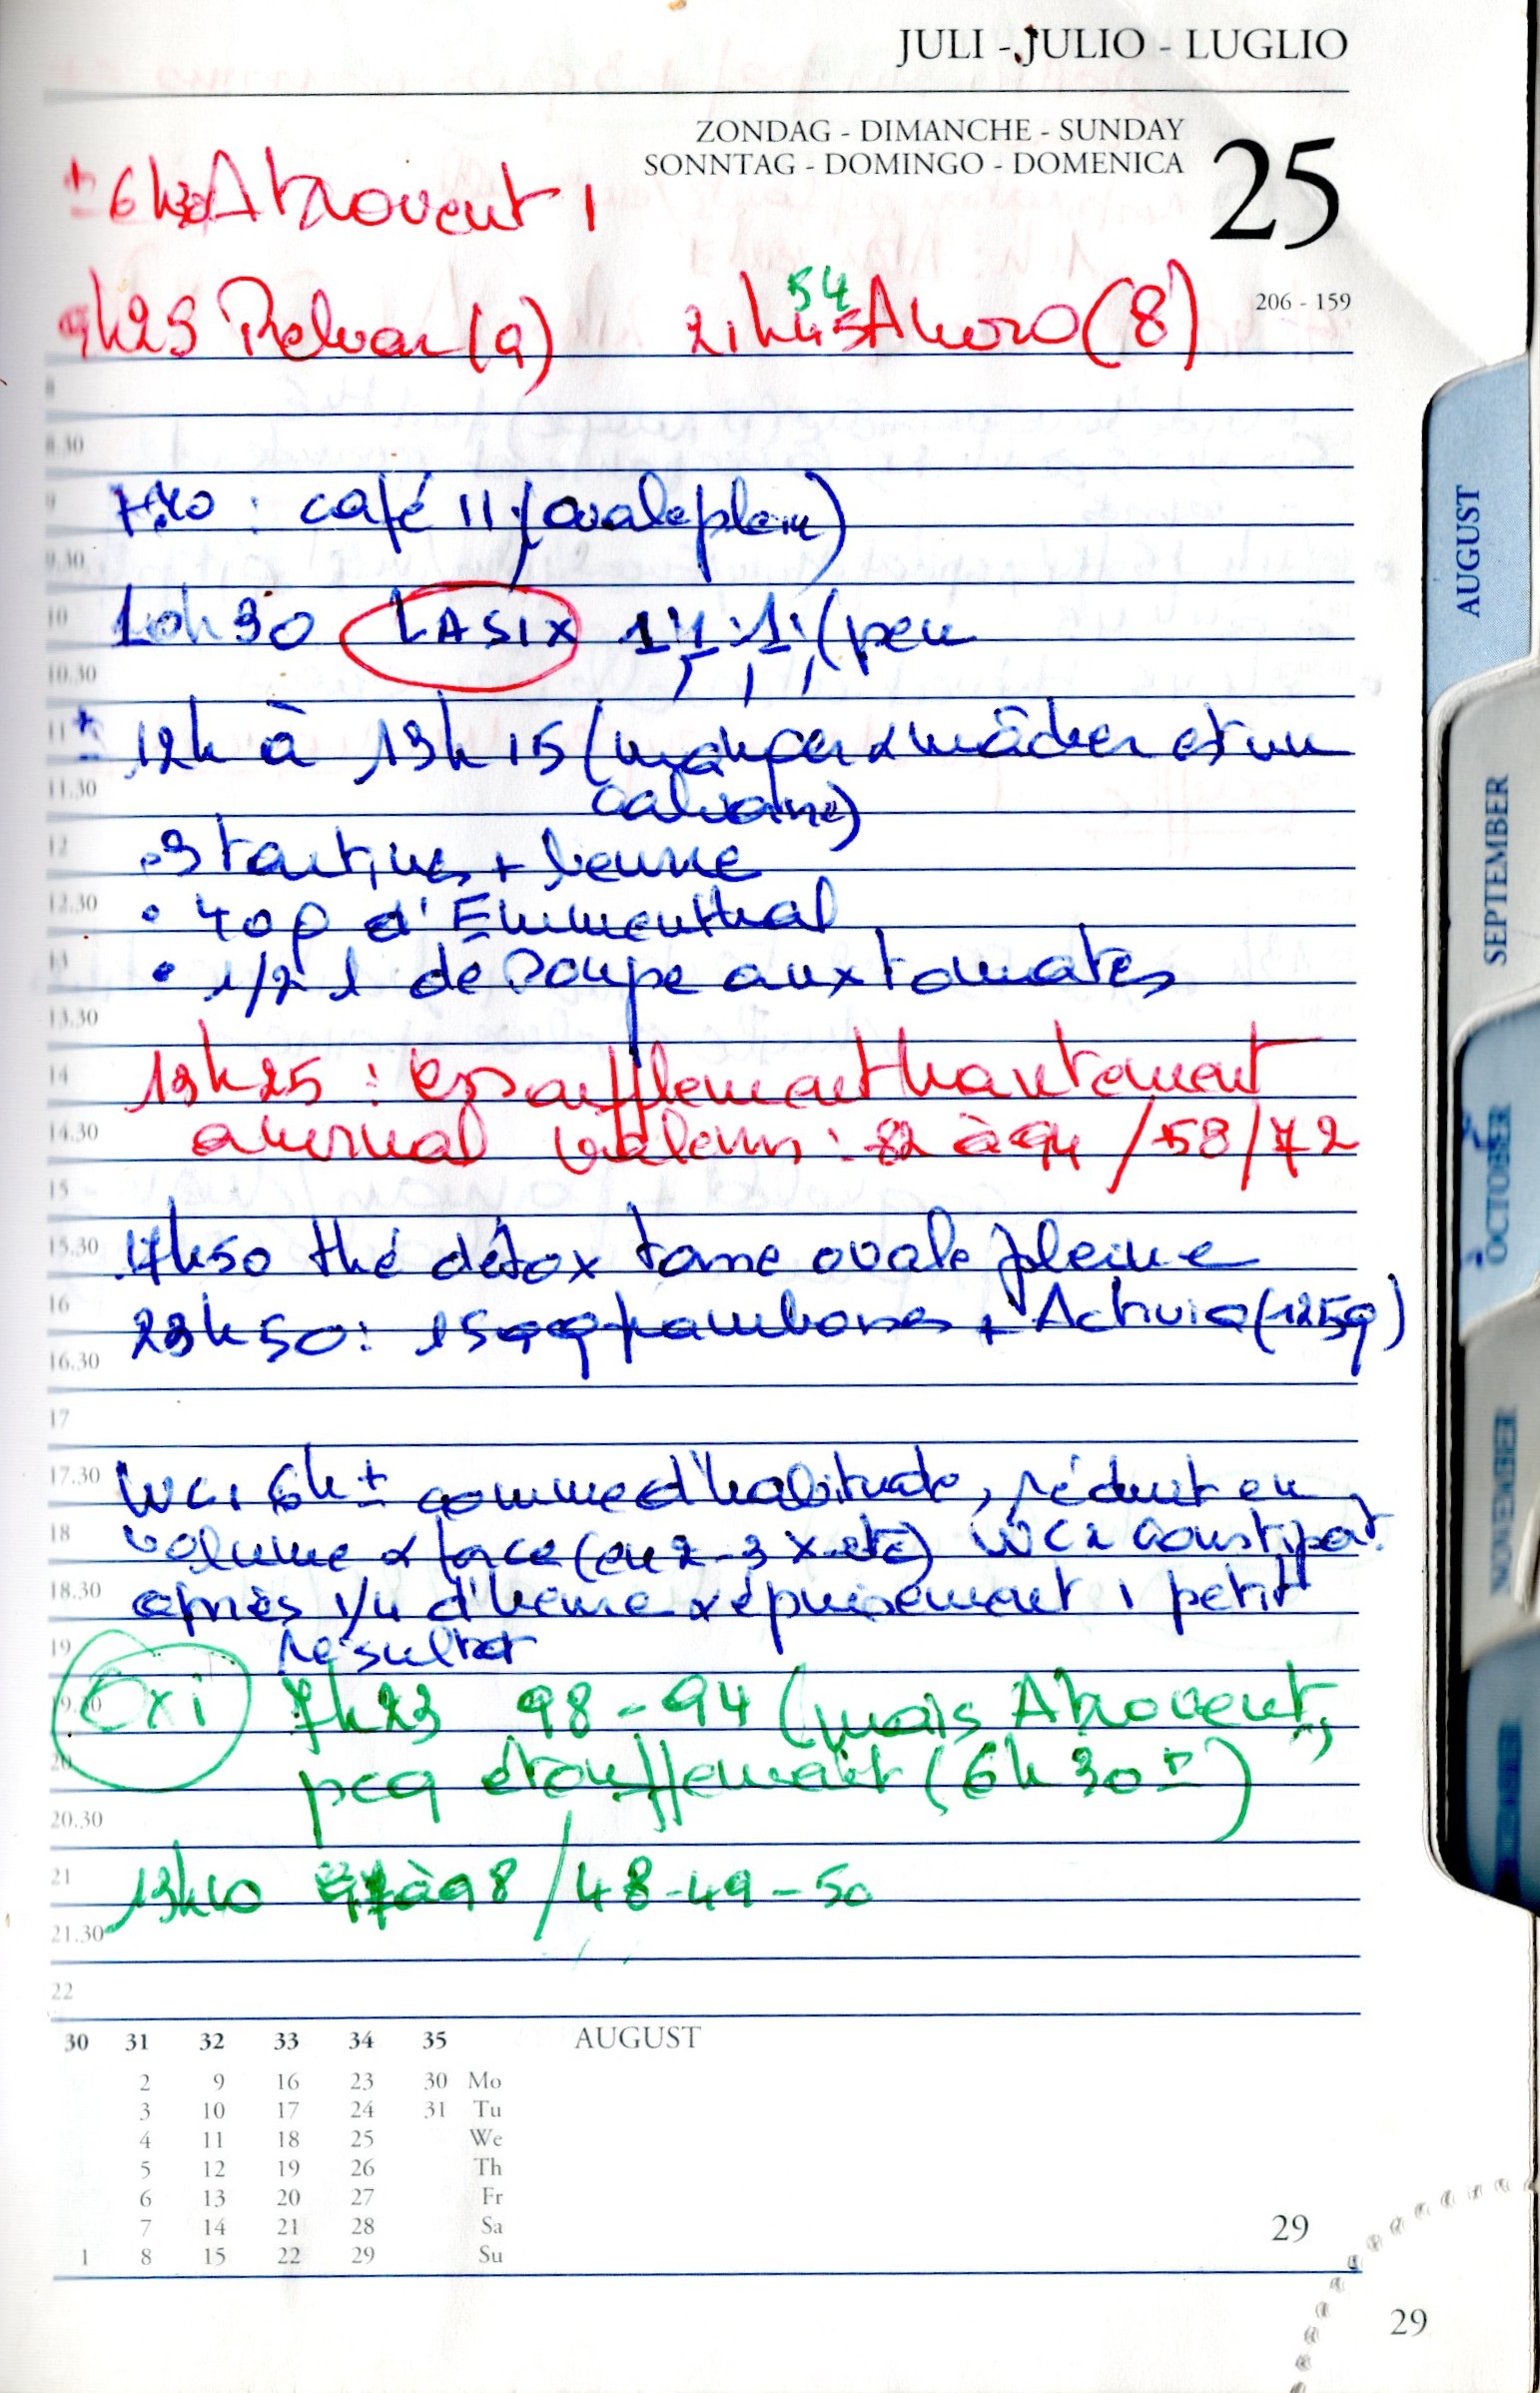 JULI - JULIO - LUGLIO
ZONDAG - DIMANCHE - SUNDAY
SONNTAG - DOMINGO - DOMENICA
25
206 - 159
± 6h30 Atrovent 1
9h25 Relvar (9) 21h45 54 (8)
8
8.30
9
7h40 : café 11 (ovale plein)
9.30
10
10h30 LASIX 1 1 1 (peu
10.30
11
± 12h à 13h15 (manger & mâcher et un
11.30
calvaire)
12
• 3 tartines + beurre
12.30
• 40g d'Emmenthal
13
• 1/2 l de soupe aux tomates
13.30
14
13h25 : essoufflement hautement
14.30
anormal valeurs : 82 à 94 / 58 / 72
15
15.30
17h50 thé détox tasse ovale pleine
16
23h50 : 150g framboises + Activia (125g)
16.30
17
17.30
WC1 6h ± comme d'habitude, réduit en
18
volume & force (en 2-3 x etc) WC2 constipat.
18.30
après 1/4 d'heure & épuisement 1 petit
19
résultat
19.30
Oxi 7h23 98-94 (mais Atrovent,
20
pcq étouffement (6h30 ±)
20.30
21
13h10 à 98 / 48-49-50
21.30
22
30 31 32 33 34 35 AUGUST
2 9 16 23 30 Mo
3 10 17 24 31 Tu
4 11 18 25 We
5 12 19 26 Th
6 13 20 27 Fr
7 14 21 28 Sa
1 8 15 22 29 Su
29
29
AUGUST
SEPTEMBER
OCTOBER
NOVEMBER